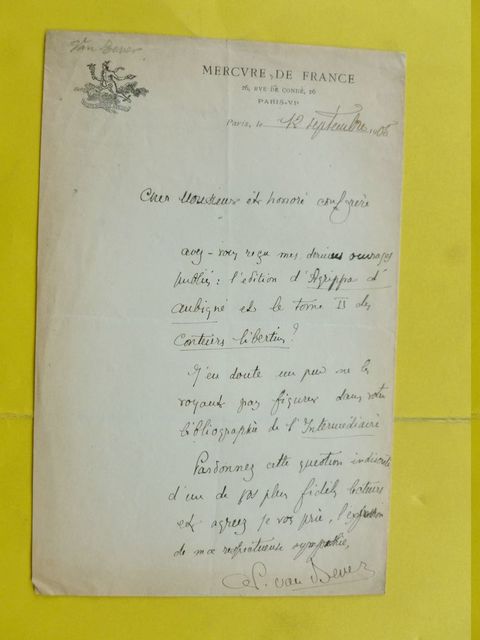 Van Bever
MERCVRE DE FRANCE
26, RVE DE CONDÉ, 26
PARIS-VIe
Paris, le 12 septembre 1905
Cher Monsieur et honoré confrère
avez-vous reçu mes derniers ouvrages
publiés : l'édition d'Agrippa d'
aubigné et le tome II des
Conteurs libertins ?
J'en doute un peu ne les
voyant pas figurer dans votre
bibliographie de l'Intermédiaire
Pardonnez cette question indiscrète
d'un de vos plus fidèles lecteurs
et agréez je vous prie, l'expression
de ma respectueuse sympathie,
Ad. van Bever